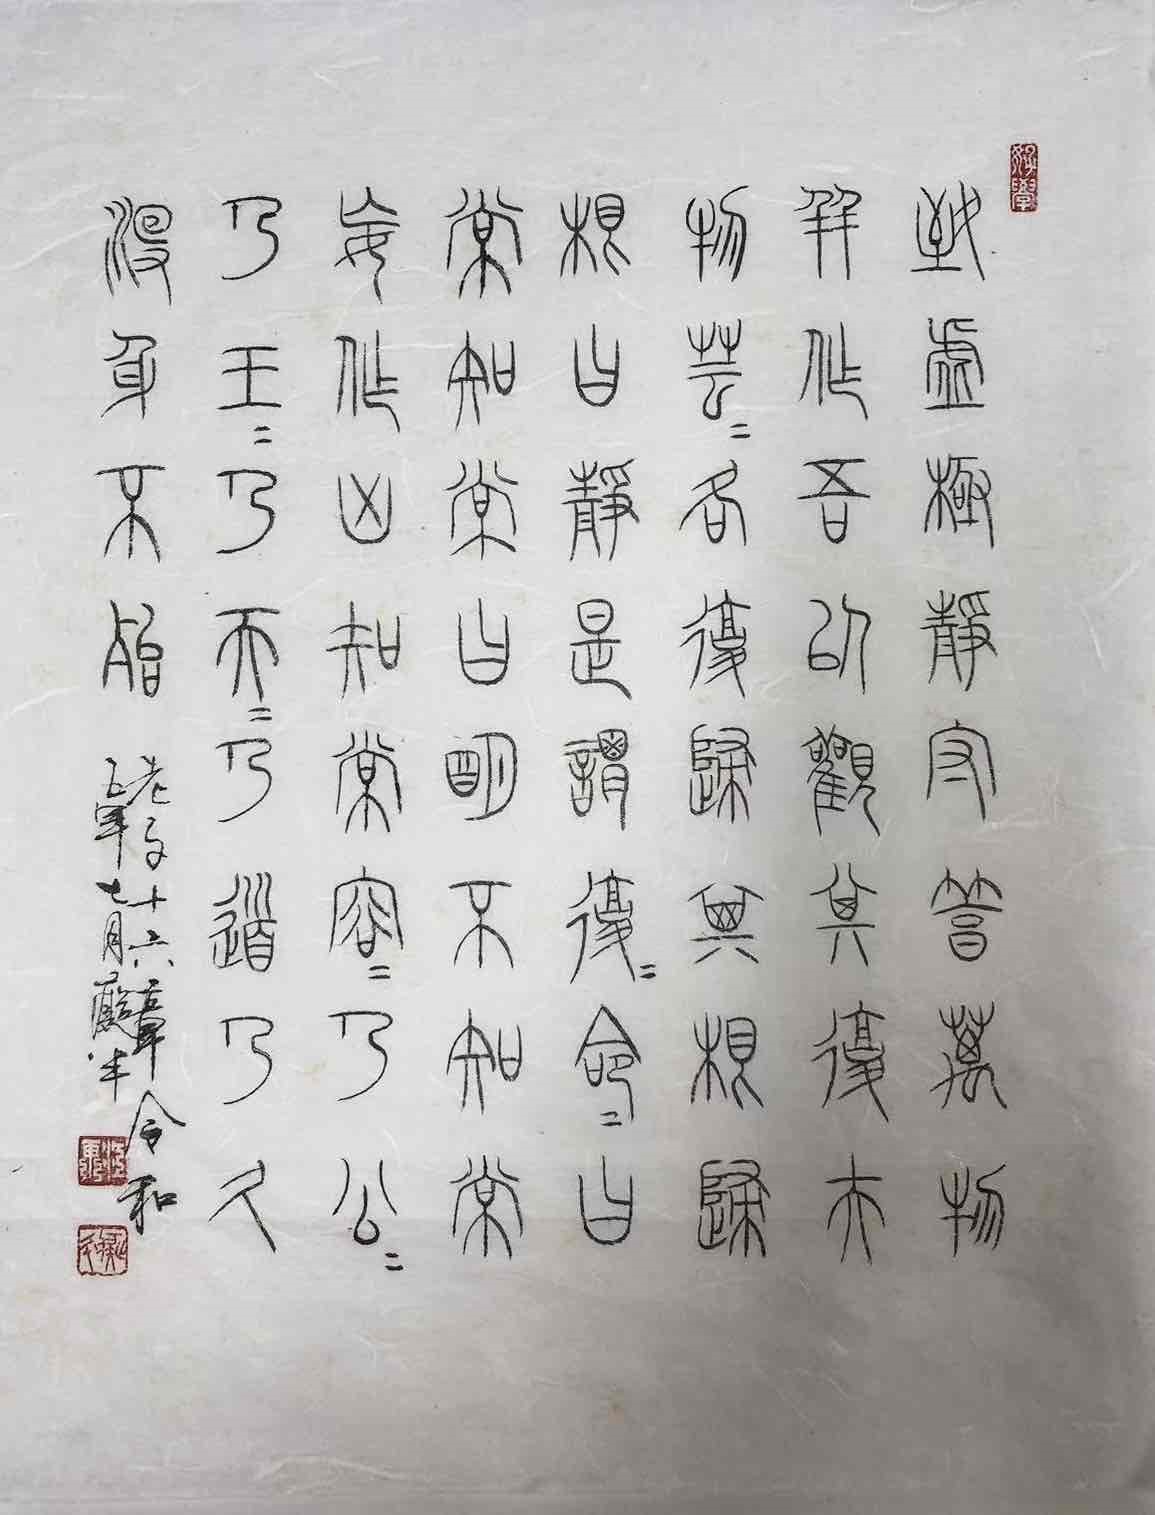 好學
致虛極靜守篤萬物
并作吾以觀其復夫
物芸〻各復歸其根歸
根曰靜是謂復〻命〻曰
常知常曰明不知常
妄作凶知常容〻乃公〻
乃王〻乃天〻乃道乃久
沒身不殆
老子十六章令和
五年七月